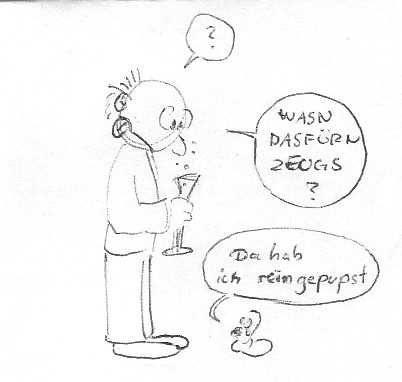 ?
WASN
DASFÜRN
ZEUGS
?
Da hab
ich reingepupst